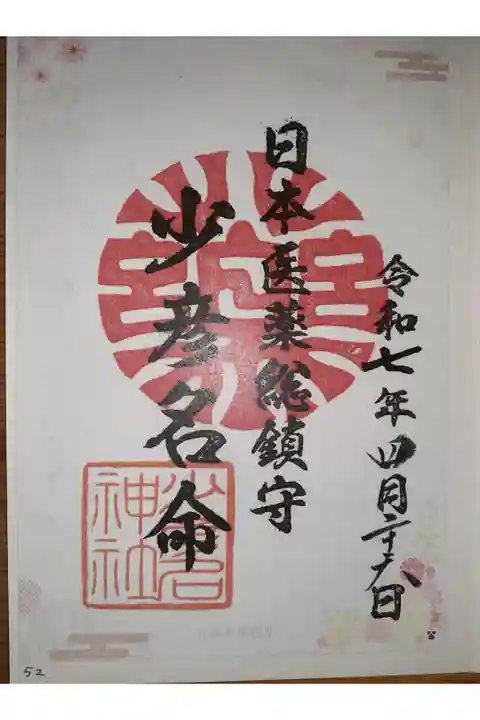 令和七年四月二十六日
日本医薬総鎮守
少彦名命
少彦名神社
52